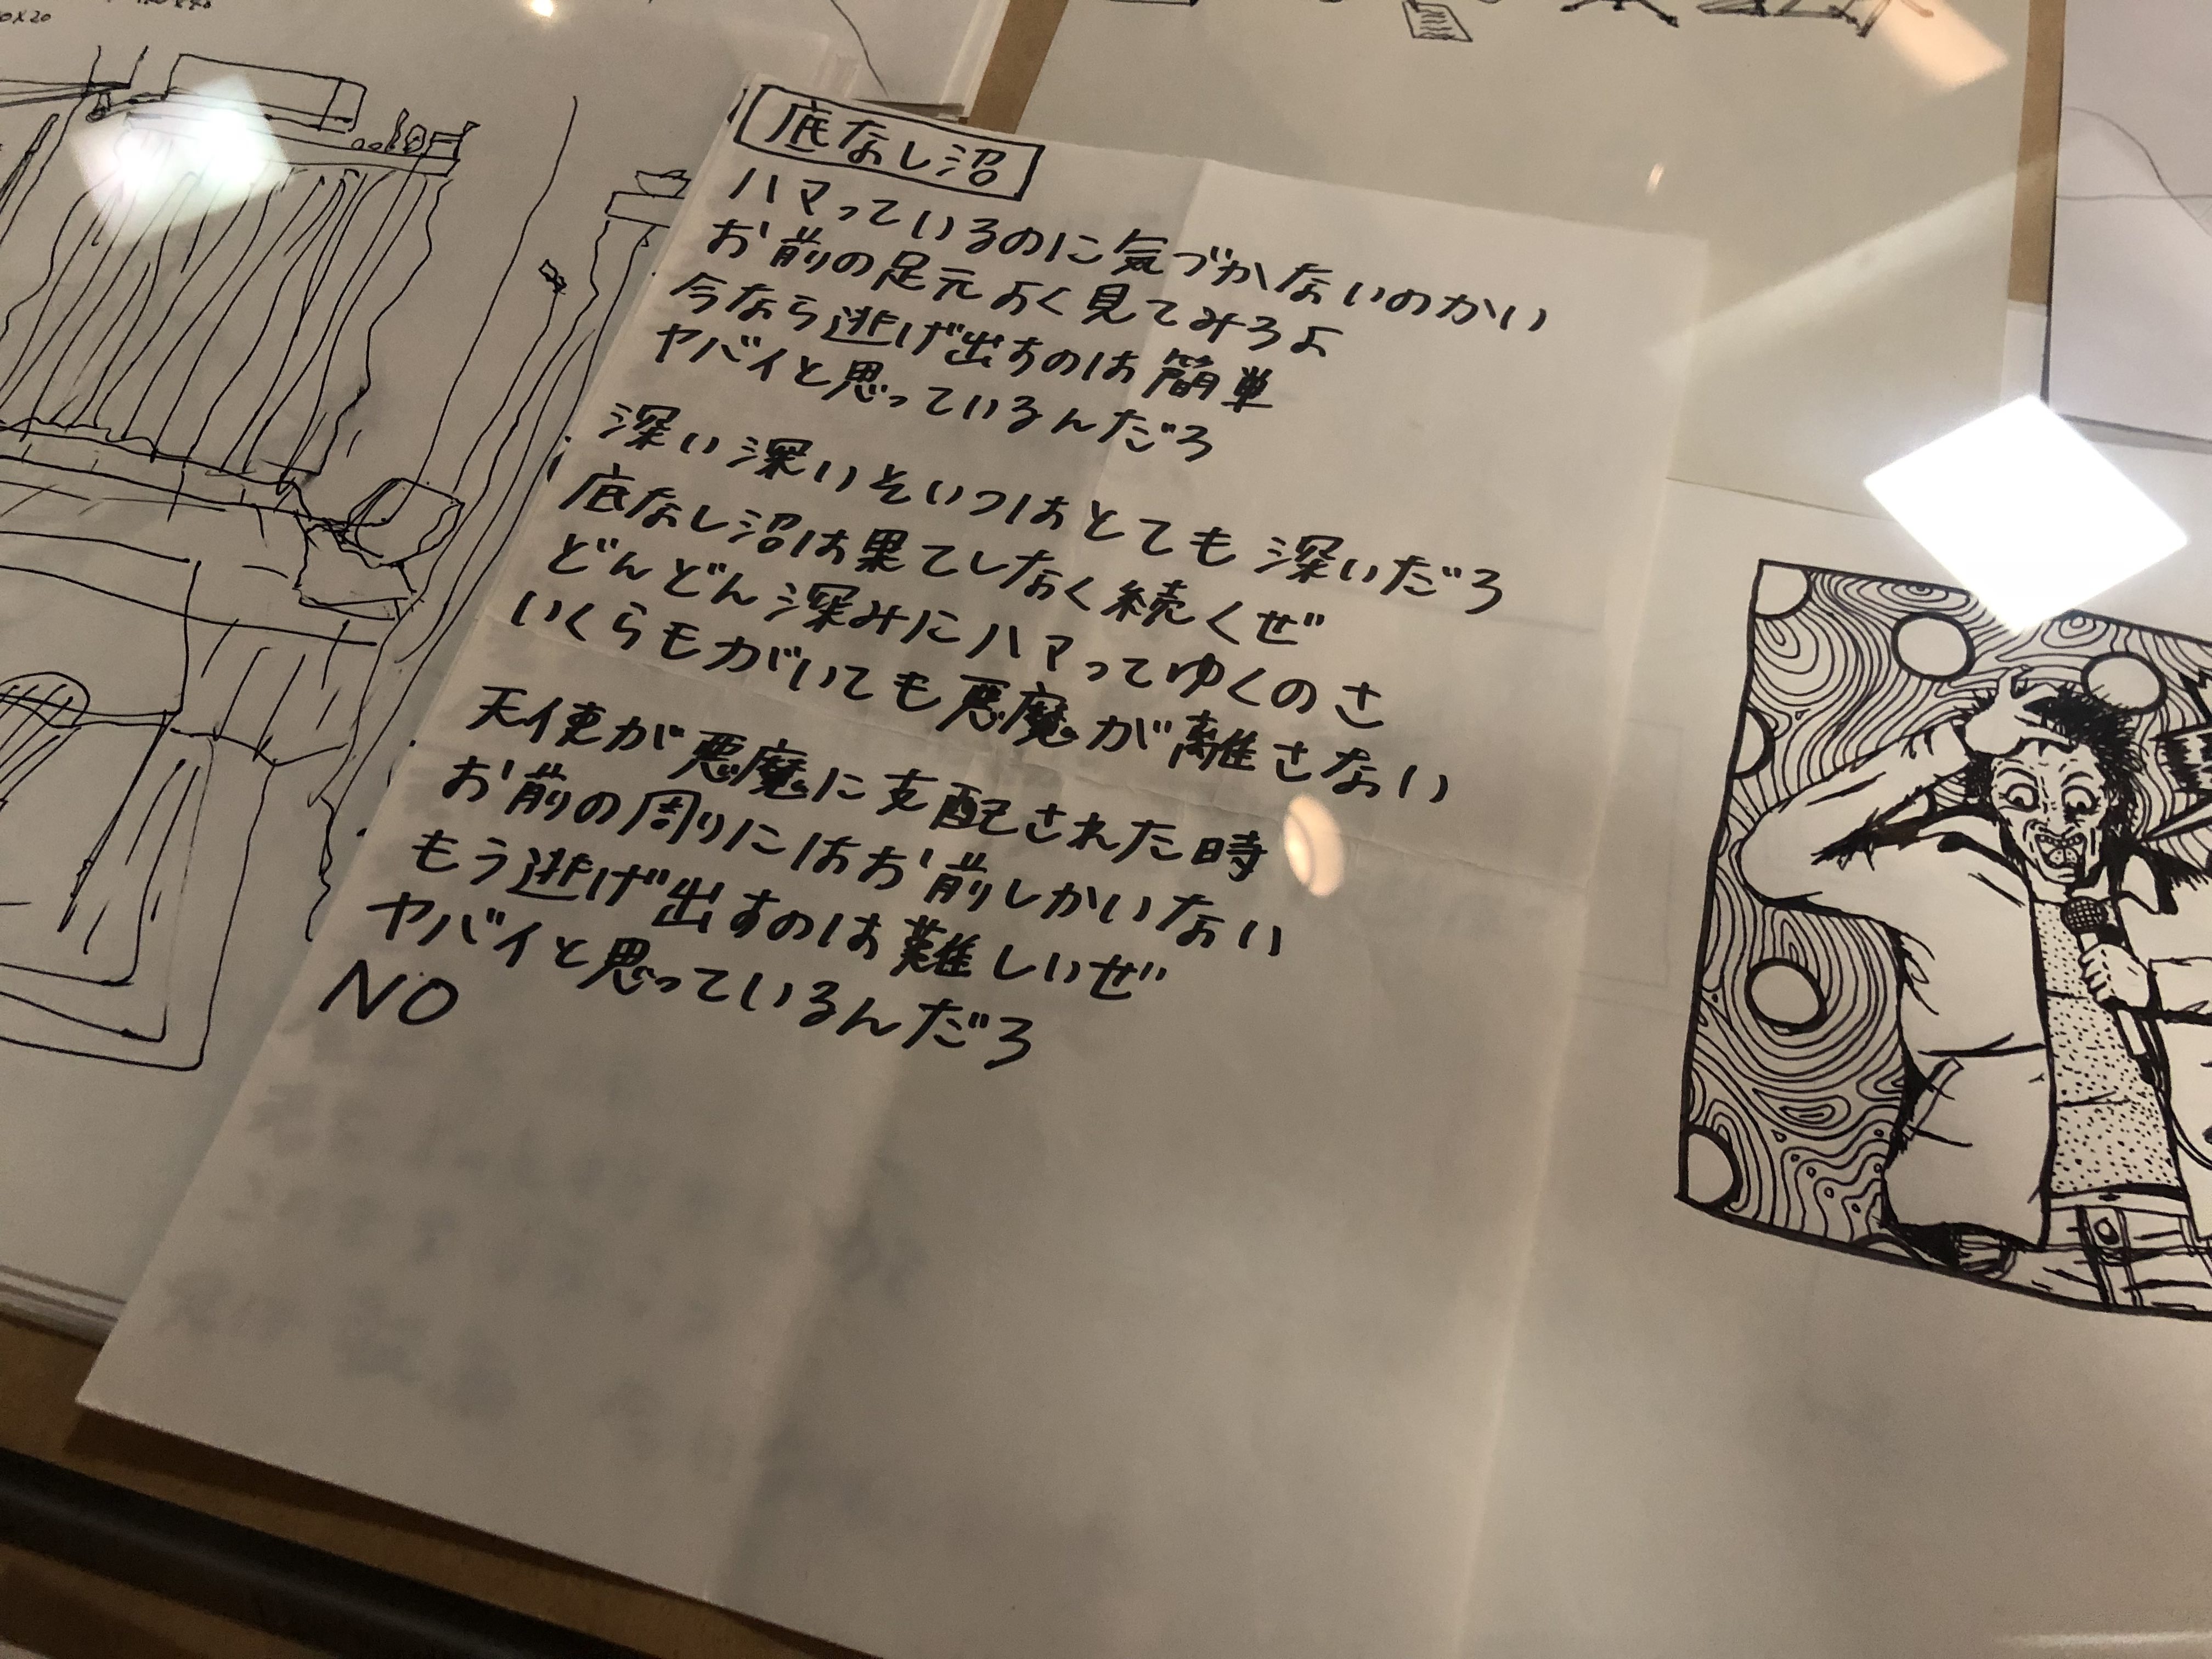 底なし沼
ハマっているのに気づかないのかい
お前の足元よく見てみろよ
今なら逃げ出すのは簡単
ヤバイと思っているんだろ
深い深いそいつはとても深いだろ
底なし沼は果てしなく続くぜ
どんどん深みにハマってゆくのさ
いくらもがいても悪魔が離さない
天使が悪魔に支配された時
お前の周りにはお前しかいない
もう逃げ出すのは難しいぜ
ヤバイと思っているんだろ
NO